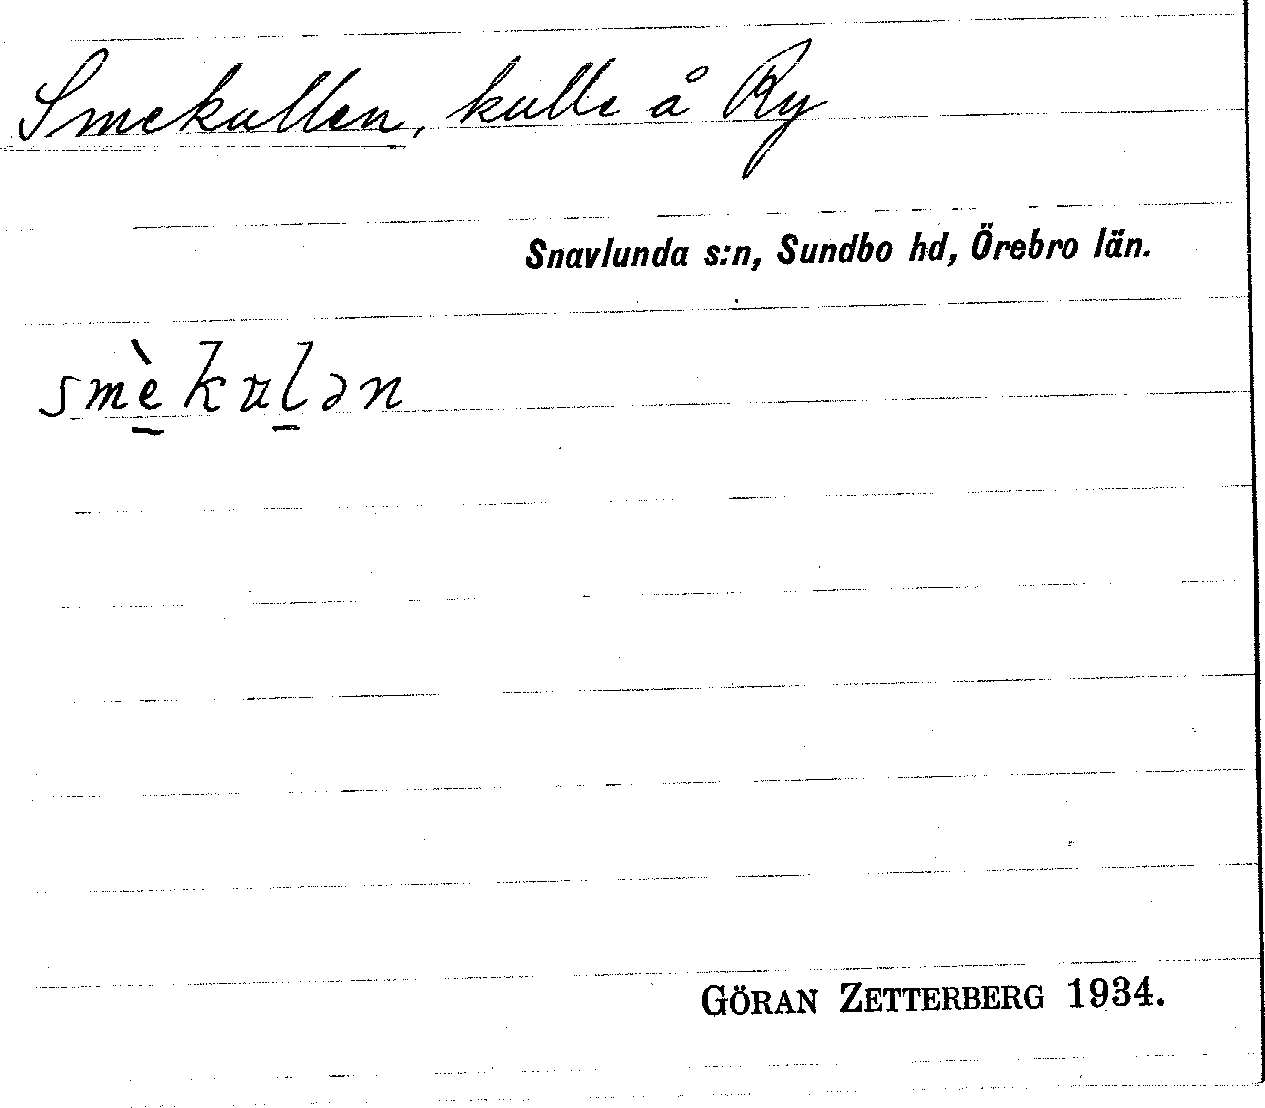 Smekullen, kulle å Ry
Snavlunda s:n, Sundbo hd, Örebro län.
smè̱kul̠ən
GÖRAN ZETTERBERG 1934.